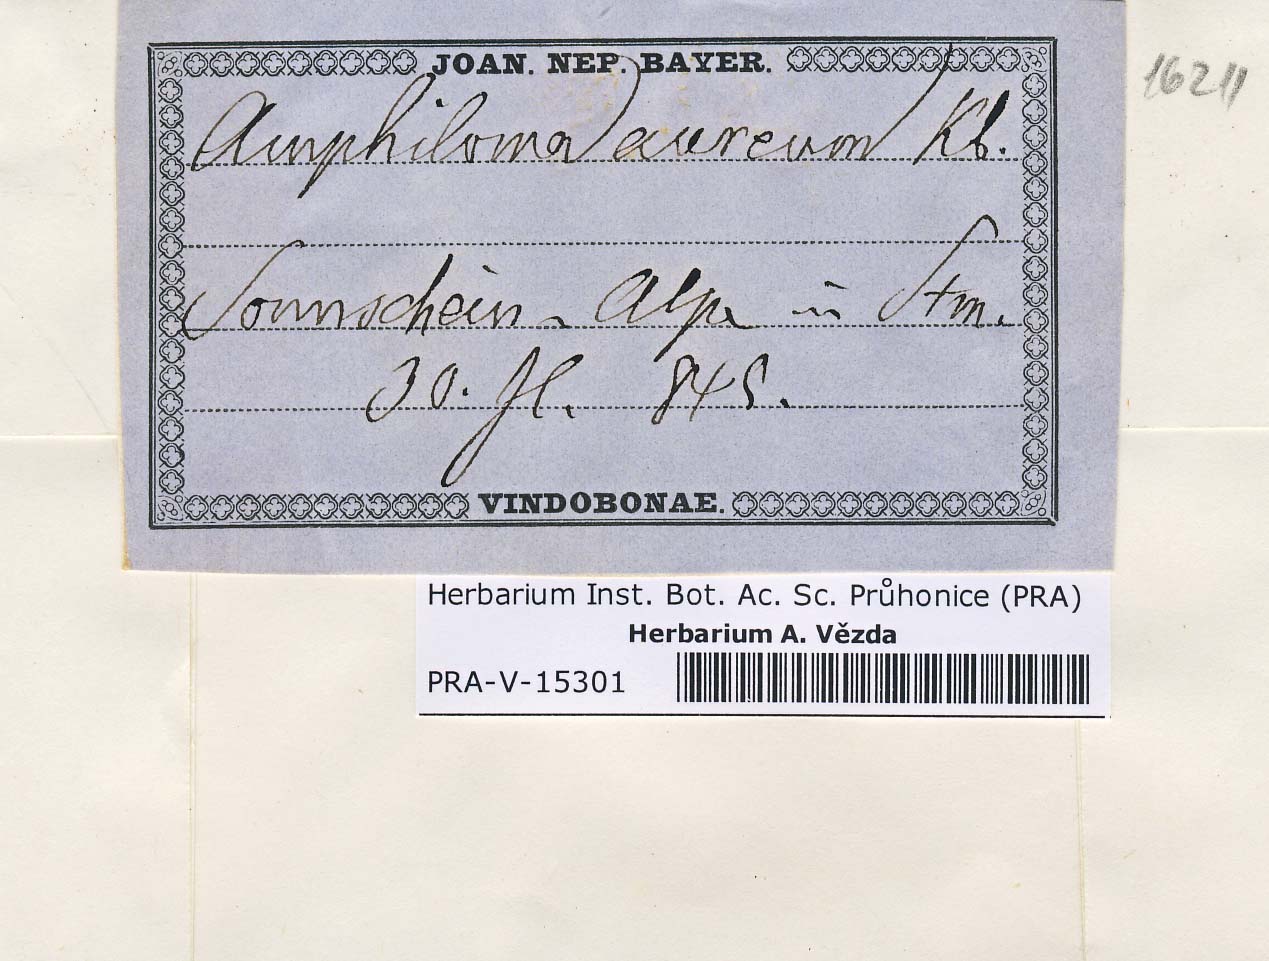 JOAN. NEP. BAYER.
16211
Amphiloma aureum Kb.
Sonnschein-Alpe in Stm.
30. Jl. 845.
VINDOBONAE.
Herbarium Inst. Bot. Ac. Sc. Průhonice (PRA)
Herbarium A. Vězda
PRA-V-15301